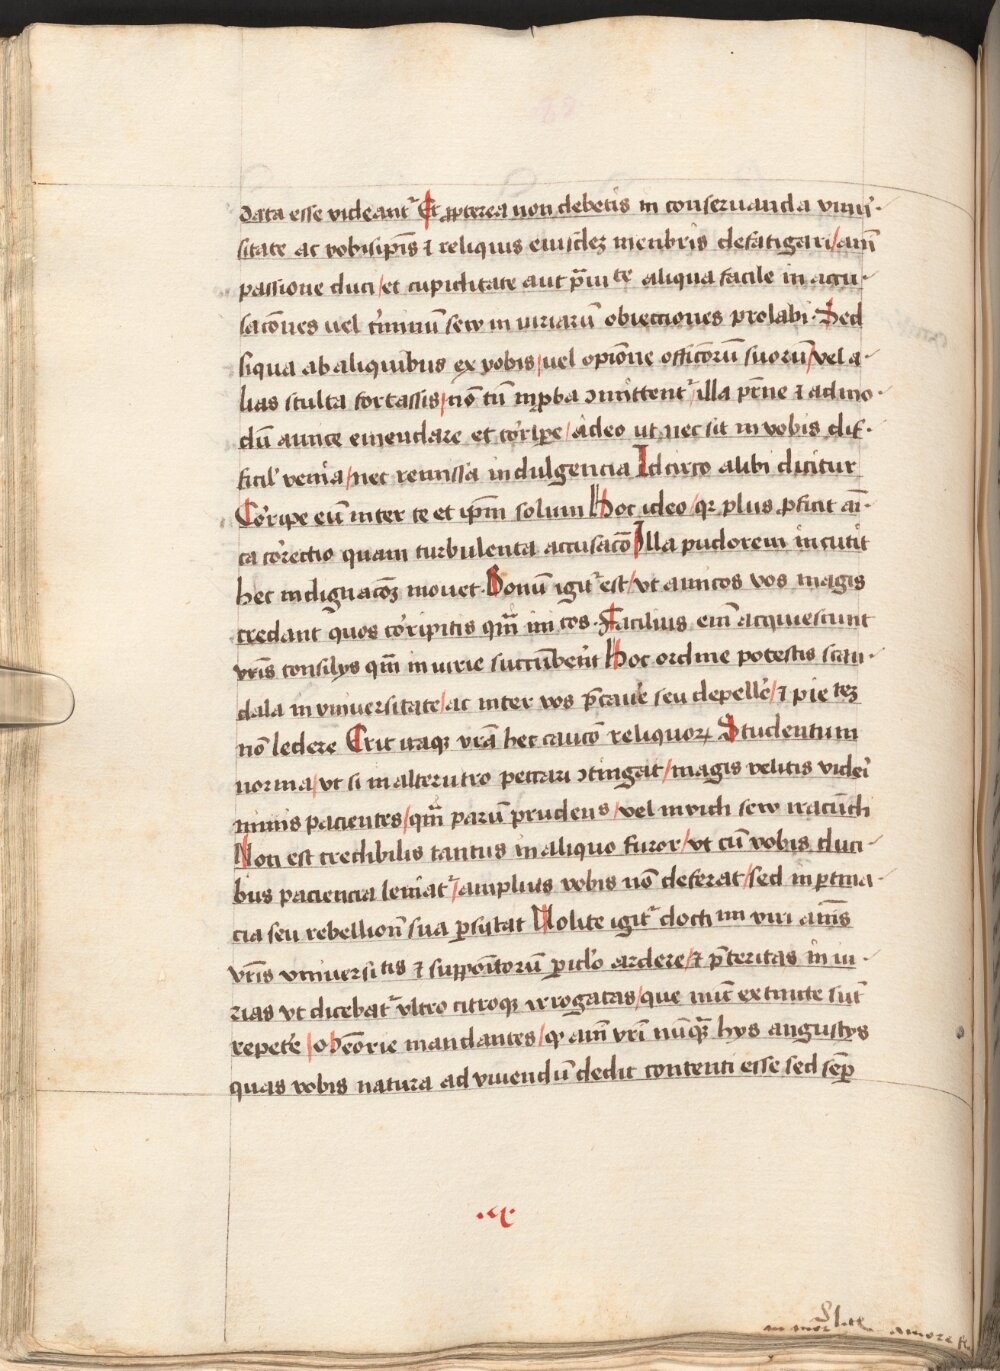 data esse videant᷑ Et ꝓpterea non debetis in conseruanda vniu᷑-
sitate ac vobisip̄is ⁊ reliquis eiusdeꝫ membris defatigari / aut
passione duci / et cupiditate aut p̄ui te aliqua facile in accu-
sac̄ones uel c᷑iminū sew in iuriarū obiectiones prolabi. Sed
siqua ab aliquibus ex vobis / uel opiōne officiorū suorū / vel a-
lias stulta fortassis / nō tn̄ inꝓba ↄmittent᷑ illa p̄ne ⁊ ad mo-
dū amice emendare et cor᷑ipe / adeo ut nec sit in vobis dif-
ficil᷑ venia / nec remissa indulgencia Idcirco alibi dicitur
Cor᷑ipe eū inter te et ip̄m solum Hoc ideo / qꝛ plus ꝓficit ami-
ca cor᷑ectio quam turbulenta accusac̄o Illa pudorem incutit
hec indignac̄oꝫ mouet. Bonū igit᷑ est / vt amicos vos magis
credant quos cor᷑ipitis qm̄ im̄ cos. Facilius em̄ acquiescunt
vr̄is consilijs qm̄ iniurie succūbent Hoc ordine potestis scan-
dala in vniuersitate / ac inter vos p̄cauē seu depellē / ⁊ pie teꝫ
nō ledere Erit itaqꝫ vr̄a hec caucō reliquoꝝ Studentum
norma / vt si in alterutro peccari ↄtingat / magis velitis videri
nimis pacientes / qm̄ parū prudens / vel inuidi sew iracūdi
Non est credibilis tantus in aliquo furor / vt cū vobis duci-
bus paciencia leniat᷑ / amplius vobis nō deferat / sed in ꝑtina-
cia seu rebellionē sua ꝑsistat Nolite igit᷑ docti mi viri animis
vr̄is vniuersi tis ⁊ suppositorū ꝑiclo ardere / ⁊ p̄teritas in iu-
rias vt dicebat᷑ vltro citroqꝫ irrogatas / que nunc extincte sunt
repetē / obēorie mandantes / ꝙ ani vr̄i nūqm̄ hijs angustijs
quas vobis natura ad viuendū dedit contenti esse sed semꝑ